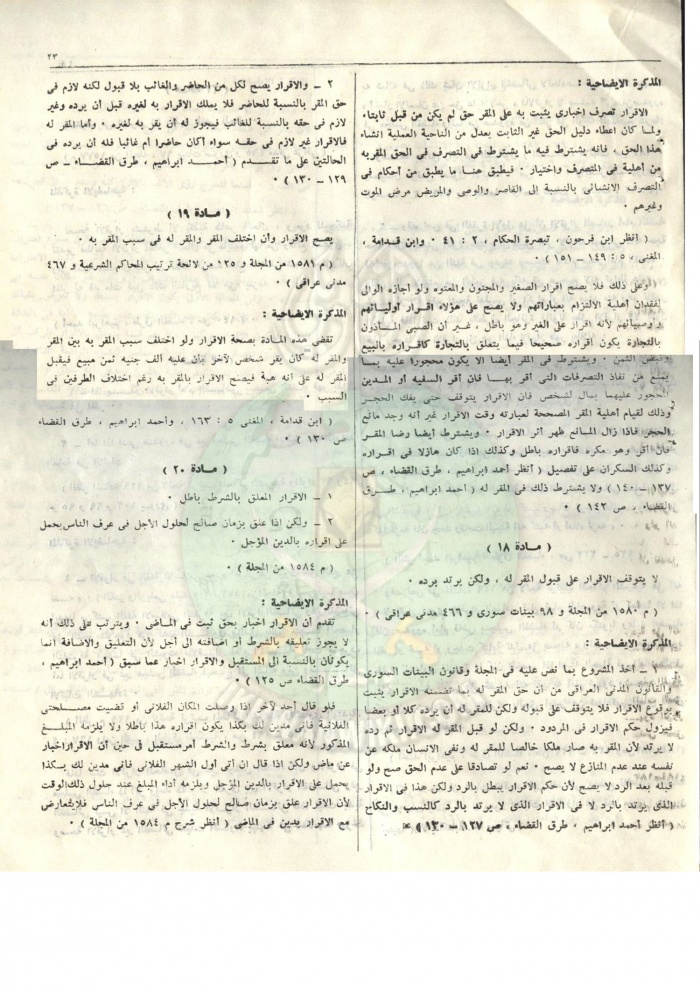 ٢٣
المذكرة الايضاحية :
الاقرار تصرف اخبارى يثبت به على المقر حق لم يكن من قبل ثابتاء
ولما كان اعطاء دليل الحق غير الثابت يعدل من الناحية العملية انشاء
هذا الحق ، فانه يشترط فيه ما يشترط فى التصرف فى الحق المقر به
من أهلية فى المتصرف واختيار ٠ فيطبق هنا ما يطبق من أحكام فى
التصرف الانشائى بالنسبة الى القاصر والوصى والمريض مرض الموت
وغيرهم ٠
( أنظر ابن فرحون ، تبصرة الحكام ، ٢ : ٤١ ٠ وابن قدامة ،
المغنى ، ٥ : ١٤٩ – ١٥١ ) ٠
وعلى ذلك فلا يصح اقرار الصغير والمجنون والمعتوه ولو أجازه الوالى
لفقدان أهلية الالتزام بعباراتهم ولا يصح على هؤلاء اقرار أوليائهم
وأوصيائهم لأنه اقرار على الغير وهو باطل ، غير أن الصبى المأذون
بالتجارة يكون اقراره صحيحا فيما يتعلق بالتجارة كاقراره بالبيع
وقبض الثمن ٠ ويشترط فى المقر أيضا الا يكون محجورا عليه بما
يمنع من نفاذ التصرفات التى أقر بها فان أقر السفيه أو المدين
المحجور عليهما بمال لشخص فان الاقرار يتوقف حتى يفك الحجر
وذلك لقيام أهلية المقر المصححة لعبارته وقت الاقرار غير أنه وجد مانع
الحجر فاذا زال المانع ظهر أثر الاقرار ٠ ويشترط أيضا رضا المقر
فان أقر وهو مكره فاقراره باطل وكذلك اذا كان هازلا فى اقراره
وكذلك السكران على تفصيل ( أنظر أحمد ابراهيم ، طرق القضاء ، ص
١٣٧ – ١٤٠ ) ولا يشترط ذلك فى المقر له ( أحمد ابراهيم ، طرق
القضاء ، ص ١٤٢ ) ٠
( مادة ١٨ )
لا يتوقف الاقرار على قبول المقر له ، ولكن يرتد برده ٠
( م ١٥٨٠ من المجلة و ٩٨ بينات سورى و ٤٦٦ مدنى عراقى ) ٠
المذكرة الايضاحية :
١ – أخذ المشروع بما نص عليه فى المجلة وقانون البينات السورى
والقانون المدنى العراقى من أن حق المقر له بما تضمنه الاقرار يثبت
بوقوع الاقرار فلا يتوقف على قبوله ولكن للمقر له أن يرده كلا أو بعضا
فيزول حكم الاقرار فى المردود ٠ ولكن لو قبل المقر له الاقرار ثم رده
لا يرتد لأن المقر به صار ملكا خالصا للمقر له ونفى الانسان ملكه عن
نفسه عند عدم المنازع لا يصح ٠ نعم لو تصادقا على عدم الحق صح ولو
قبله بعد الرد لا يصح لأن حكم الاقرار يبطل بالرد ولكن هذا فى الاقرار
الذى يرتد بالرد لا فى الاقرار الذى لا يرتد بالرد كالنسب والنكاح
( أنظر أحمد ابراهيم ، طرق القضاء ، ص ١٢٧ – ١٣٠ )
٢ – والاقرار يصح لكل من الحاضر والغائب بلا قبول لكنه لازم فى
حق المقر بالنسبة للحاضر فلا يملك الاقرار به لغيره قبل أن يرده وغير
لازم فى حقه بالنسبة للغائب فيجوز له أن يقر به لغيره ٠ وأما المقر له
فالاقرار غير لازم فى حقه سواء أكان حاضرا أم غائبا فله أن يرده فى
الحالتين على ما تقدم ( أحمد ابراهيم ، طرق القضاء – ص
١٢٩ – ١٣٠ ) ٠
( مادة ١٩ )
يصح الاقرار وأن إختلف المقر والمقر له فى سبب المقر به ٠
( م ١٥٨١ من المجلة و ١٢٥ من لائحة ترتيب المحاكم الشرعية و ٤٦٧
مدنى عراقى ) ٠
المذكرة الايضاحية :
تقضى هذه المادة بصحة الاقرار ولو اختلف سبب المقر به بين المقر
والمقر له كأن يقر شخص لآخر بأن عليه ألف جنيه ثمن مبيع فيقبل
المقر له على انه هبة فيصح الاقرار بالمقر به رغم اختلاف الطرفين فى
السبب ٠
( ابن قدامة ، المغنى ٥ : ١٦٣ ، وأحمد ابراهيم ، طرق القضاء
ص ١٣٠ ) ٠
( مادة ٢٠ )
١ – الاقرار المعلق بالشرط باطل ٠
٢ – ولكن إذا علق بزمان صالح لحلول الأجل فى عرف الناس يحمل
على اقراره بالدين المؤجل ٠
( م ١٥٨٤ من المجلة ) ٠
المذكرة الايضاحية :
تقدم أن الاقرار اخبار بحق ثبت فى الماضى ٠ ويترتب على ذلك أنه
لا يجوز تعليقه بالشرط أو اضافته الى أجل لأن التعليق والاضافة انما
يكونان بالنسبة الى المستقبل والاقرار اخبار عما سبق ( أحمد ابراهيم ،
طرق القضاء ص ١٢٥ ) ٠
فلو قال أحد لآخر اذا وصلت المكان الفلانى أو قضيت مصلحتى
الفلانية فانى مدين لك بكذا يكون اقراره هذا باطلا ولا يلزمه المبلغ
المذكور لأنه معلق بشرط والشرط أمر مستقبل فى حين أن الاقرار اخبار
عن ماض ولكن اذا قال ان أتى أول الشهر الفلانى فانى مدين لك بكذا
يحمل على الاقرار بالدين المؤجل ويلزمه أداء المبلغ عند حلول ذلك الوقت
لأن الاقرار علق بزمان صالح لحلول الأجل فى عرف الناس فلا يتعارض
مع الاقرار بدين فى الماضى ( أنظر شرح م ١٥٨٤ من المجلة ) ٠